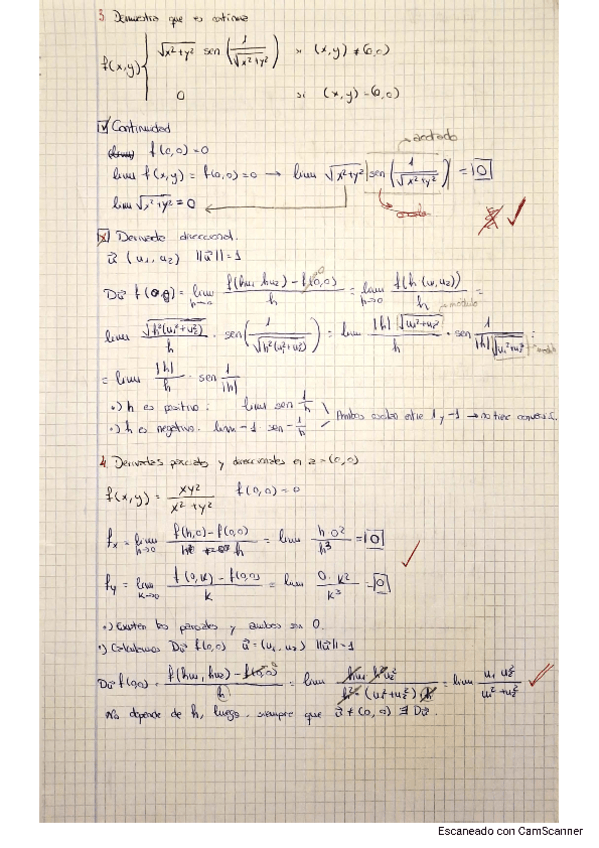 3. Demuestra que es continua
f(x,y) { √x²+y² sen (1/√x²+y²) si (x,y) ≠ (0,0)
0 si (x,y) = (0,0)
Continuidad
f(0,0) = 0
→ acotado
lim f(x,y) = f(0,0) = 0 → lim √x²+y² |sen (1/√x²+y²)| = 0
lim √x²+y² = 0 ←
Derivada direccional.
ū (u₁, u₂) ||ū|| = 1
Dū f(0,0) = lim h→0 f(hu₁, hu₂) - f(0,0) / h = lim h→0 f(h(u₁,u₂)) / h =
módulo
lim √h²(u₁²+u₂²) / h · sen (1/√h²(u₁²+u₂²)) = lim |h| √u₁²+u₂² / h · sen 1/|h|√u₁²+u₂² =
= lim |h|/h · sen 1/|h|
·) h es positivo: lim sen 1/h
Ambos oscilan entre 1 y -1 → no tiene
·) h es negativo. lim -1 · sen -1/h
4. Derivadas parciales y direccionales en a = (0,0)
f(x,y) = xy² / x² + y² f(0,0) = 0
fx = lim h→0 f(h,0) - f(0,0) / h = lim h·0² / h³ = 0
fy = lim k→0 f(0,k) - f(0,0) / k = lim 0·k² / k³ = 0
·) Existen las parciales y ambas son 0.
·) Calculamos Dū f(0,0) ū = (u₁, u₂) ||ū|| = 1
Dū f(0,0) = f(hu₁, hu₂) - f(0,0) / h = lim hu₁ h²u₂² / h² (u₁²+u₂²) h = lim u₁ u₂² / u₁² + u₂²
No depende de h, luego, siempre que ū ≠ (0,0) ∃ Dū.
Escaneado con CamScanner